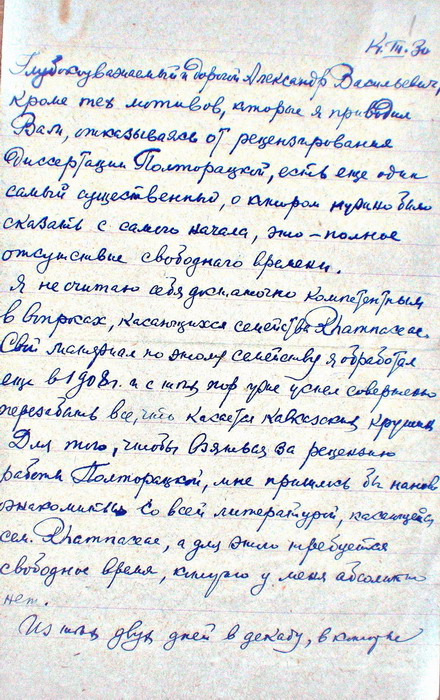 14.III.30
Глубокоуважаемый и дорогой Александр Васильевич,
кроме тех мотивов, которые я приводил
Вам, отказываясь от рецензирования
диссертации Полторацкой, есть еще один
самый существенный, о котором нужно было
сказать с самого начала, это – полное
отсутствие свободнаго времени.
Я не считаю себя достаточно компетентным
в вопросах, касающихся семейства Rhamnaceae.
Свой материал по этому семейству я обработал
еще в 1908г. и с тех пор уже успел совершенно
перезабыть все, что касается кавказских крушин
Для того, чтобы взяться за рецензию
работы Полторацкой, мне пришлось бы наново
знакомиться со всей литературой, касающейся
сем. Rhamnaceae, а для этого требуется
свободное время, которого у меня абсолютно
нет.
Из тех двух дней в декаду, в которые